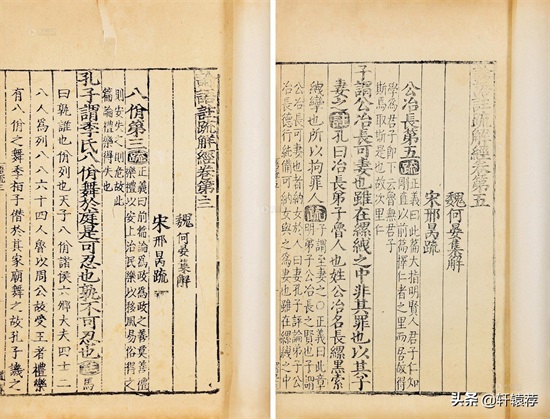 論語註疏解經卷第三
魏何晏集解
宋邢昺疏
八佾第三 疏 正義曰前篇論為政為政之善莫善禮
樂禮以安上治民樂以移風易俗得之
則安失之則危故此
篇論禮樂得失也
孔子謂季氏八佾舞於庭是可忍也孰不可忍也 註 馬
曰孰誰也佾列也天子八佾諸侯六卿大夫四士二
八人為列八八六十四人魯以周公故受王者禮樂
有八佾之舞季桓子僭於其家廟舞之故孔子譏之
論語註疏解經卷第五
魏何晏集解
宋邢昺疏
公冶長第五 疏 正義曰此篇大指明賢人君子仁知
剛直以前篇擇仁者之里而居故得
學為君子即下云魯無君子
斯焉取斯是也故次里仁
子謂公冶長可妻也雖在縲絏之中非其罪也以其子
妻之 註 孔曰冶長弟子魯人也姓公冶名長縲黑索
絏攣也所以拘罪人 疏 子謂至妻之○正義曰此章
明弟子公冶長之賢也子謂
公冶長可妻也者納女於人曰妻孔子評論弟子公
冶長德行純備可納女與之為妻也雖在縲
頭条 @轩辕荐